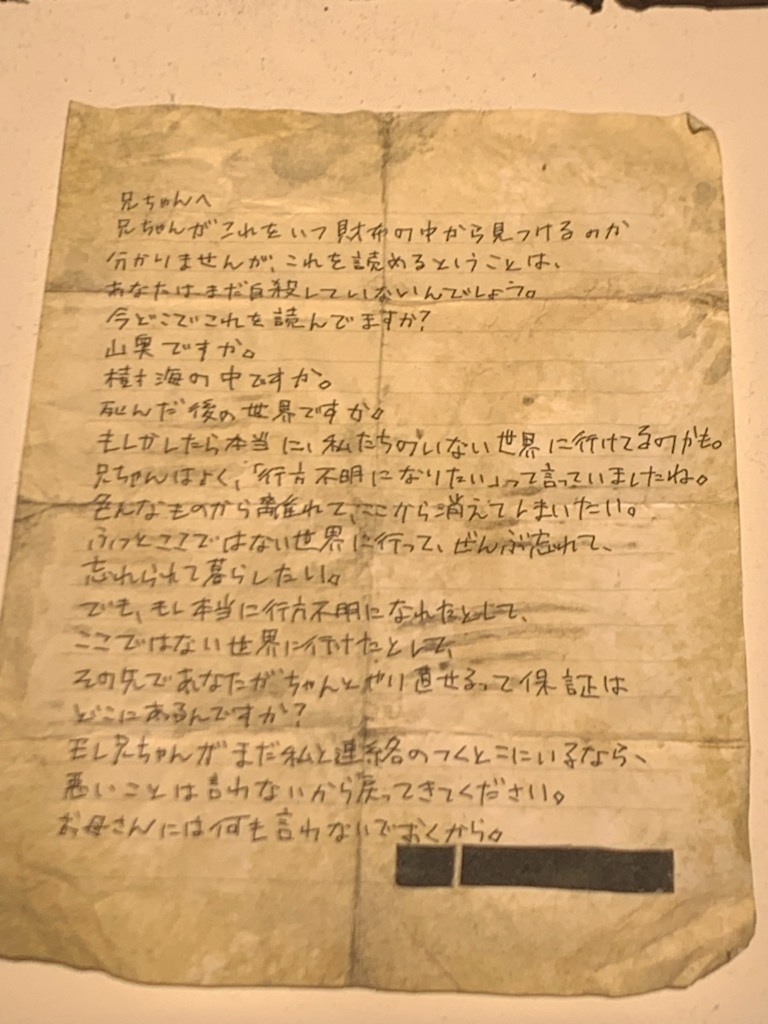 兄ちゃんへ
兄ちゃんがこれをいつ財布の中から見つけるのか
分かりませんが、これを読めるということは、
あなたはまだ自殺していないんでしょう。
今どこでこれを読んでますか？
山奥ですか。
樹海の中ですか。
死んだ後の世界ですか。
もしかしたら本当に、私たちのいない世界に行けてるのかも。
兄ちゃんはよく、「行方不明になりたい」って言っていましたね。
色んなものから離れて、ここから消えてしまいたい。
ふっとここではない世界に行って、ぜんぶ忘れて、
忘れられて暮らしたい。
でも、もし本当に行方不明になれたとして、
ここではない世界に行けたとして、
その先であなたがちゃんとやり直せるって保証は
どこにあるんですか？
もし兄ちゃんがまだ私と連絡のつくとこにいるなら、
悪いことは言わないから戻ってきてください。
お母さんには何も言わないでおくから。